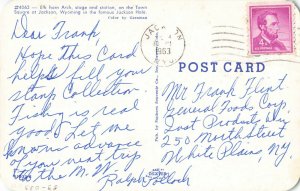 274063 - Elk Horn Arch, stage and station, on the Town
Square at Jackson, Wyoming in the famous Jackson Hole.
Color by
Dear Frank,
Hope this Card
helps fill your
stamp Collection.
Fishing is real
good. Let me
know in advance
of your next trip
to the M.W.
Ralph Pollock
JACKSON
1953
WYO.
POST CARD
Mr Frank Flint
General Foods Corp.
Post Products Div
250 North Street
White Plains, N.Y.